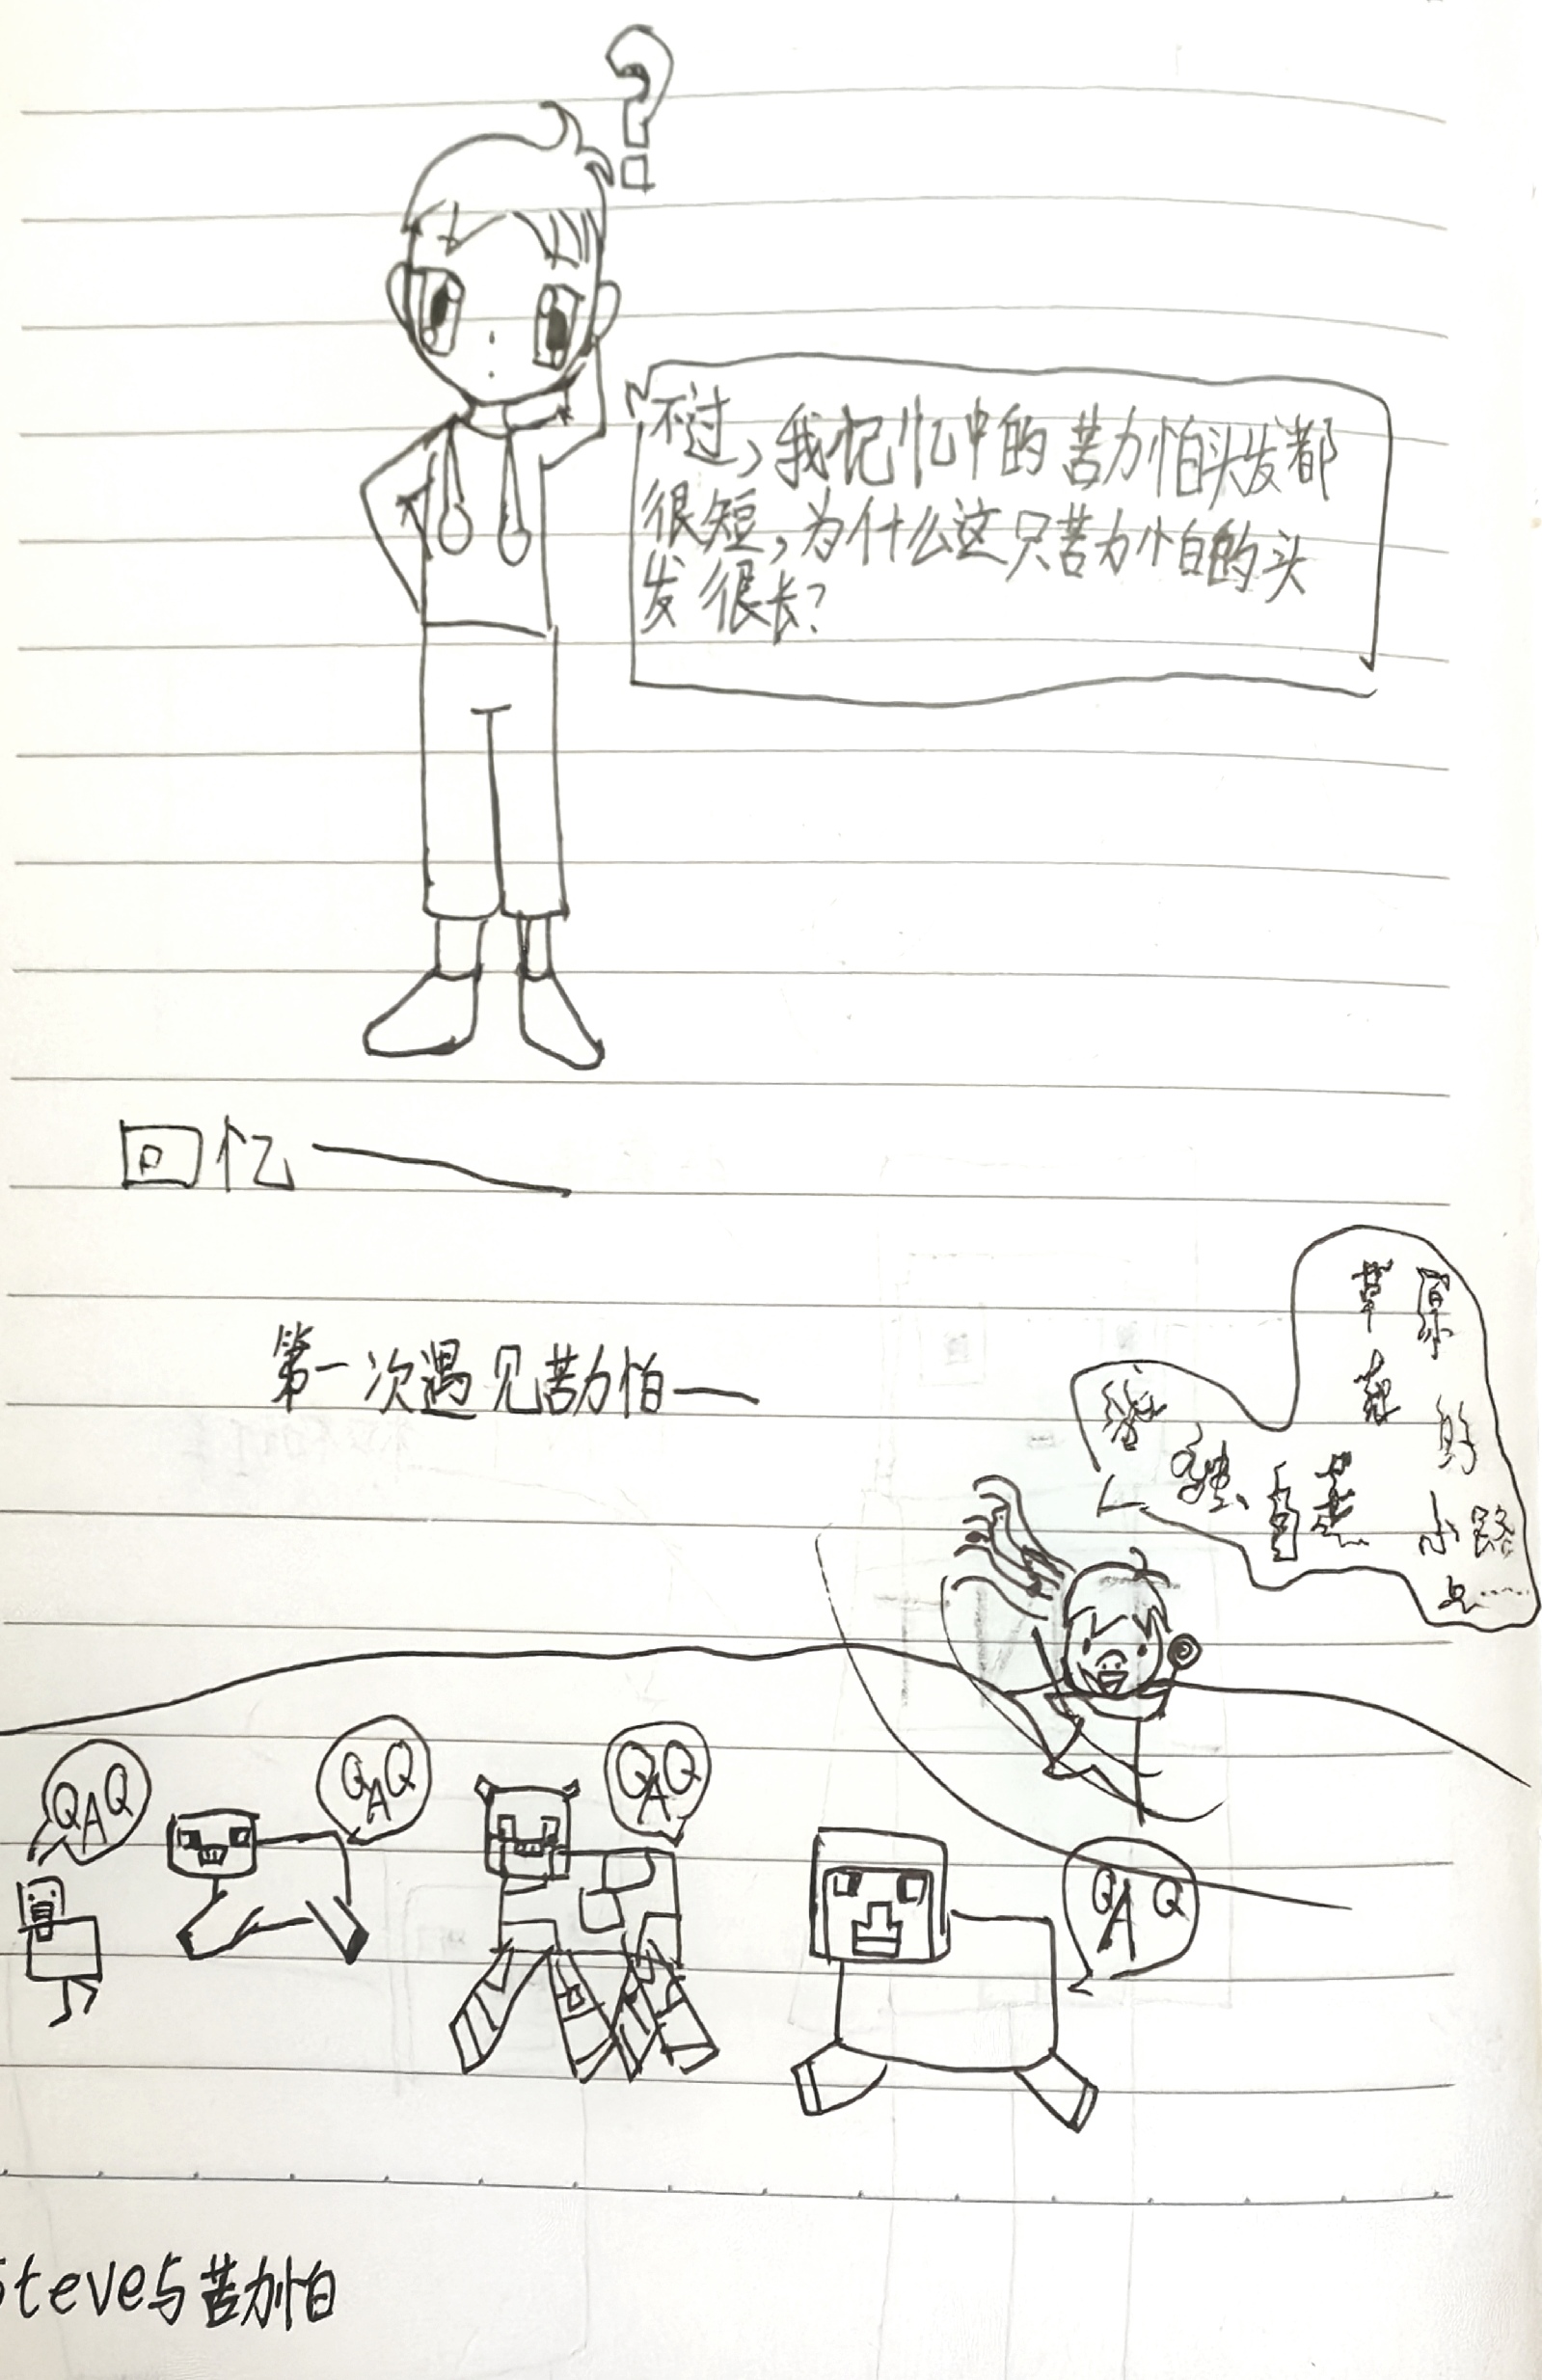 ?
不过，我记忆中的苦力怕头发都
很短，为什么这只苦力怕的头
发很长？
回忆——
第一次遇见苦力怕——
草原
的
小路
上……
QAQ
QAQ
QAQ
QAQ
Steve与苦力怕